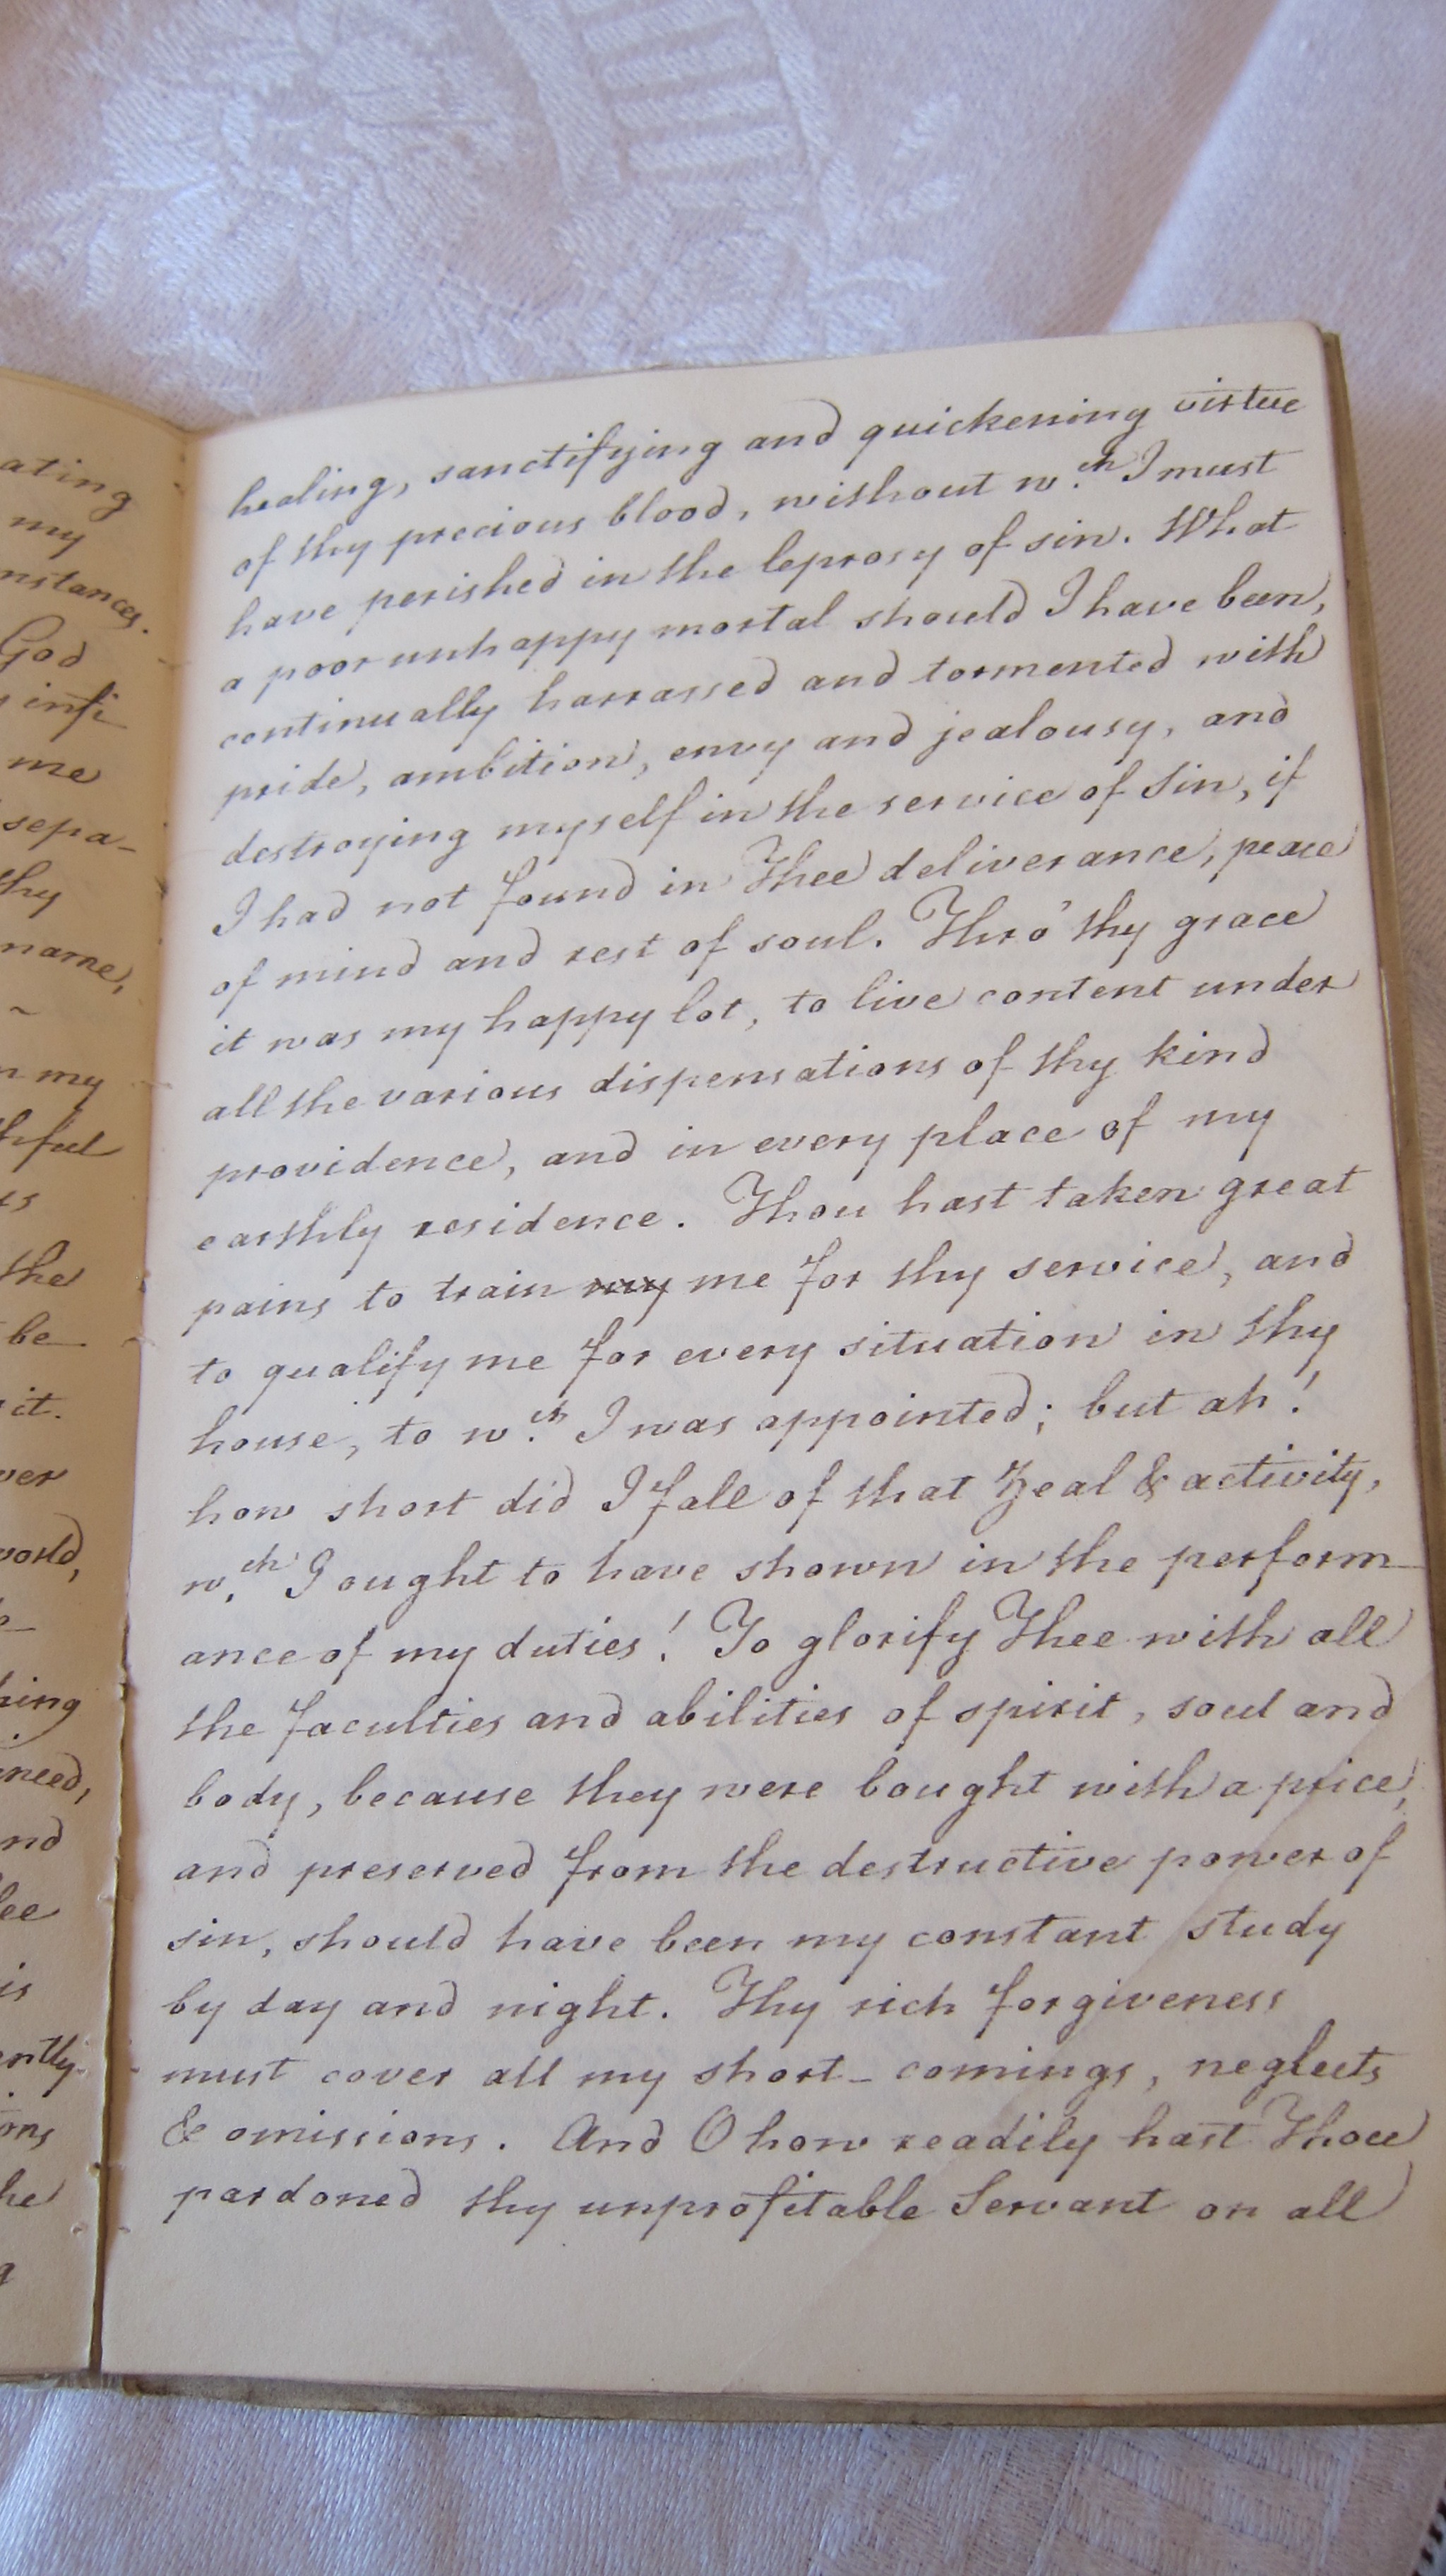 ating
my
nstances.
God
infi
me
sepa-
thy
name,
~
n my
thful
is
the
be
it.
ver
world,
hing
need,
nd
lee
is
ently
ons
he
healing, sanctifying and quickening virtue
of thy precious blood, without w.ch I must
have perished in the leprosy of sin. What
a poor unhappy mortal should I have been,
continually harrassed and tormented with
pride, ambition, envy and jealousy, and
destroying myself in the service of Sin, if
I had not found in Thee deliverance, peace
of mind and rest of soul. Thro' thy grace
it was my happy lot, to live content under
all the various dispensations of thy kind
providence, and in every place of my
earthly residence. Thou hast taken great
pains to train my me for thy service, and
to qualify me for every situation in thy
house, to w.ch I was appointed; but ah!
how short did I fall of that Zeal & activity,
w.ch I ought to have shown in the perform-
ance of my duties! To glorify Thee with all
the faculties and abilities of spirit, soul and
body, because they were bought with a price,
and preserved from the destructive power of
sin, should have been my constant study
by day and night. Thy rich forgiveness
must cover all my short-comings, neglects
& omissions. And O how readily hast Thou
pardoned thy unprofitable Servant on all